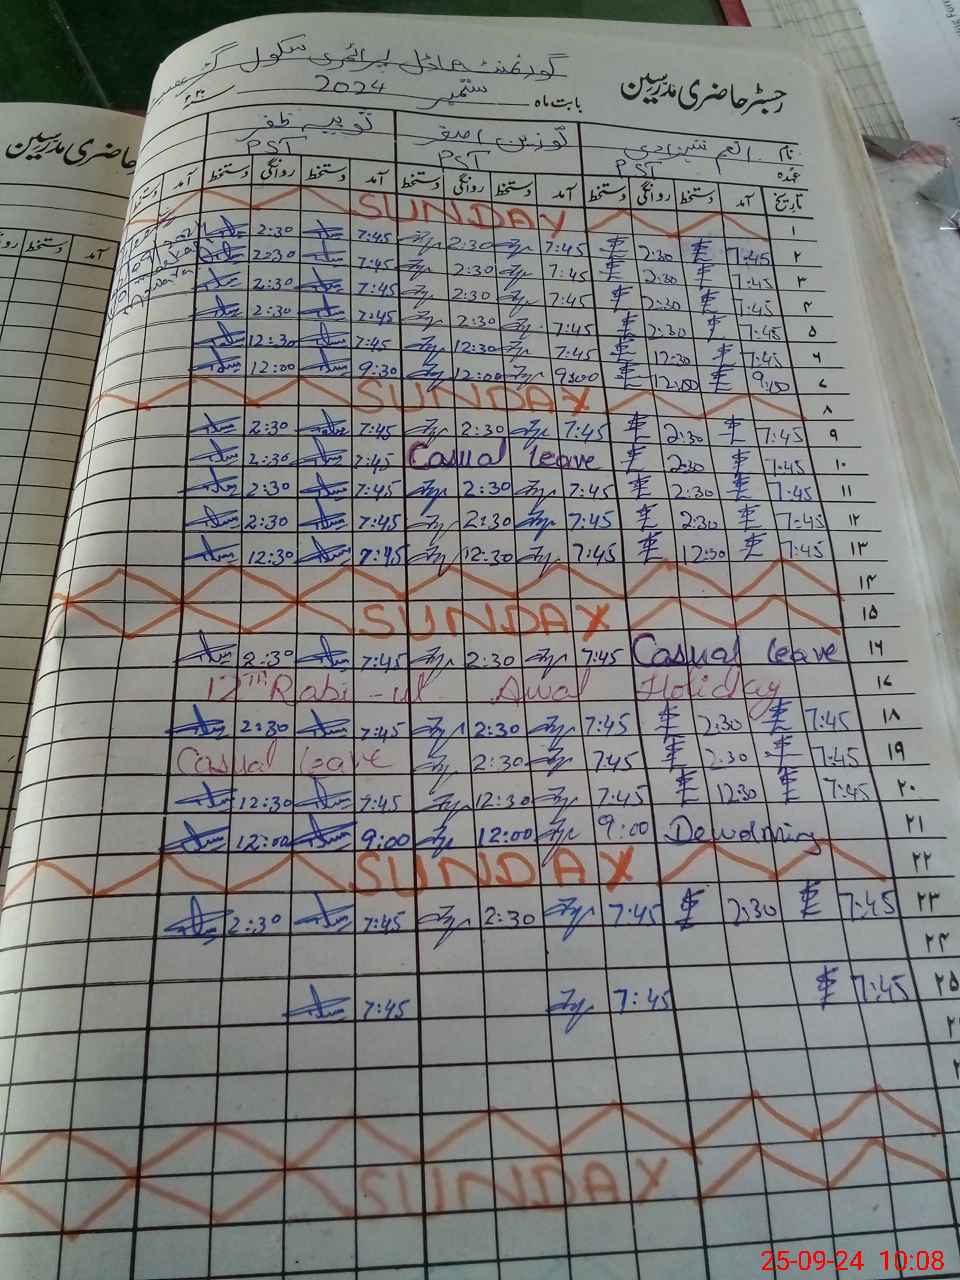 رجسٹر حاضری مدرسین
گورنمنٹ ماڈل پرائمری سکول
بابت ماہ ستمبر 2024
حاضری مدرسین
نام
ثوبیہ ظفر
عہدہ PST PST PST
تاریخ آمد دستخط روانگی دستخط آمد دستخط روانگی دستخط آمد دستخط روانگی دستخط آمد دستخط
آمد دستخط
۱ SUNDAY
۲ 7:45 2:30 7:45 2:30 7:45 2:30
۳ 7:45 2:30 7:45 2:30 7:45 2:30
۴ 7:45 2:30 7:45 2:30 7:45 2:30
۵ 7:45 2:30 7:45 2:30 7:45 2:30
۶ 7:45 12:30 7:45 12:30 7:45 12:30
۷ 9:00 12:00 9:00 12:00 9:30 12:00
۸ SUNDAY
۹ 7:45 2:30 7:45 2:30 7:45 2:30
۱۰ 7:45 2:30 Casual leave 7:45 2:30
۱۱ 7:45 2:30 7:45 2:30 7:45 2:30
۱۲ 7:45 2:30 7:45 2:30 7:45 2:30
۱۳ 7:45 12:30 7:45 12:30 7:45 12:30
۱۴
۱۵ SUNDAY
۱۶ Casual leave 7:45 2:30 7:45 2:30
۱۷ 12TH Rabi-ul Awal Holiday
۱۸ 7:45 2:30 7:45 2:30 7:45 2:30
۱۹ 7:45 2:30 7:45 2:30 Casual leave
۲۰ 7:45 12:30 7:45 12:30 7:45 12:30
۲۱ Deworming 9:00 12:00 9:00 12:00
۲۲ SUNDAY
۲۳ 7:45 2:30 7:45 2:30 7:45 2:30
۲۴
۲۵ 7:45 7:45 7:45
SUNDAY
25-09-24 10:08